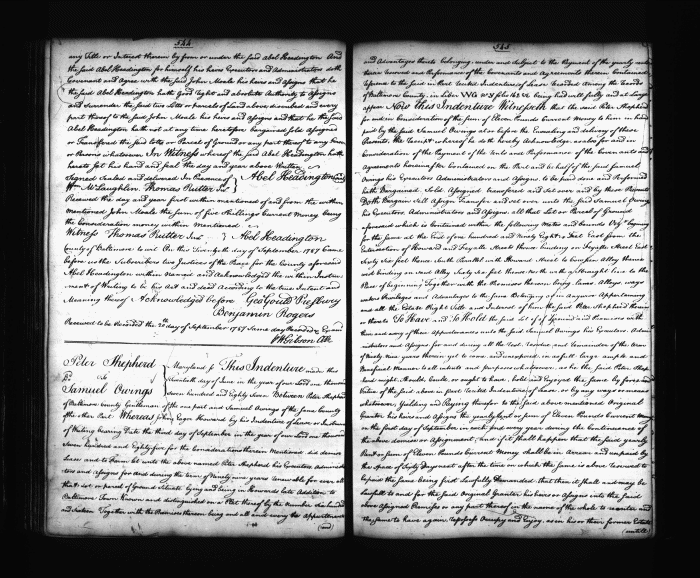 544
any Title or Interest therein by from or under the said Abel Headington And
the said Abel Headington for himself his heirs Executors and Administrators doth
Covenant and Agree with the said John Moale his heirs and Assigns that he
the said Abel Headington hath Good Right and absolute Authority to Assigns
and Surrender the said two Lotts or parcels of Land above devised and every
part thereof to the said John Moale his heirs and Assigns and that he the said
Abel Headington hath not at any time heretofore bargained sold Assigned
or Transferred the said Lotts or Parcel of Ground or any part thereof to any Person
or Persons whatever In Witness whereof the said Abel Headington hath
hereto set his hand and seal the day and year above Written
Signed Sealed and delivered In Presence of } Abel Headington
Wm McLaughlin Thomas Rutter Junr
Received the day and year first within mentioned of and from the within
mentioned John Moale the sum of five Shillings Current Money being
the Consideration money within Mentioned
Witness Thomas Rutter Junr } Abel Headington
County of Baltimore to wit On this day of September 1787 Came
before us the Subscribers two Justices of the Peace for the County aforesaid
Abel Headington within Named and Acknowledged the within Instru-
ment of Writing to be his Act and deed According to the true Intent and
Meaning thereof Acknowledged before Geo Gould Presbury
Benjamin Rogers
Received to be Recorded the 20th day of September 1787 same day Recorded &
Wm Gibson Clk
Peter Shepherd
To
Samuel Owings
Maryland ss This Indenture made this
day of June in the year of our Lord one thousand
Seven hundred and Eighty Seven Between Peter Shepherd
of Baltimore County Gentleman of the one part and Samuel Owings of the same County
of the other Part Whereas John Eager Howard by his Indenture of Lease or
of Writing bearing Date the third day of September in the year of our Lord one thousand
Seven hundred and Eighty five for the Considerations therein Mentioned did demise
lease and to Farm let unto the above named Peter Shepherd his Executors Administra-
tors and Assigns for and during the term of Ninety nine years renewable for ever all
that lot or parcel of Ground Situate lying and being in Howards late Addition to
Baltimore Town known and distinguished on a Plat thereof by the Number Six hundred
and Sixteen Together with the Premises thereon being and all and every the Appurtenances
(and)
545
and Advantages thereto belonging under and Subject to the Payment of the yearly rent
therein reserved and Performance of the Covenants and Agreements therein Contained
of Baltimore County in Liber WG
appear Now this Indenture Witnesseth that the said Peter Shepherd
for and in Consideration of the sum of Eleven Pounds Current Money to him in hand
paid by the said Samuel Owings at or before the Ensealing and delivery of these
Presents the Receipt whereof he doth hereby Acknowledge as also for and in
Consideration of the Payment of the Rents and Performance of the Covenants and
Agreements herein after Contained on the Part and behalf of the said Samuel
Owings his Executors Administrators and Assigns to be paid done and Performed
hath Bargained Sold Assigned transferred and Set over and by these Presents
Doth Bargain Sell Assign Transfer and set over unto the said Samuel Owings
his Executors Administrators and Assigns all that Lot or Parcel of Ground
aforesaid which is Contained within the following Metes and Bounds
for the same at the End of one hundred and Ninety Eight Feet East from the
intersection of Howard and Fayette Streets thence binding on Fayette Street East
Sixty six feet thence South Parallel with Howard Street to
and binding on said Alley Sixty six feet thence North with a Straight line to the
Place of beginning Together with the Premises thereon being Lanes Alleys ways
waters Privileges and Advantages to the Same Belonging or in any wise Appertaining
and all the Estate Right Title and Interest of him the said Peter Shepherd therein
or thereto To Have and To Hold the said Lot of Ground and Premises with
them and every of their Appurtenances unto the said Samuel Owings his Executors Admi-
nistrators and Assigns for and during all the Rest Residue and remainder of the term
of Ninety nine years therein yet to come and unexpired in as full large ample and
Beneficial Manner to all intents and purposes whatsoever as he the said Peter Shep-
herd might Should Could or ought to have held and Enjoyed the same by force and
Virtue of the said above in Part recited Indenture of Lease or by any ways or means
whatsoever Yielding and Paying therefor to the said above mentioned Original
Grantor his heirs and Assigns the yearly Rent or sum of Eleven Pounds Current Money
on the third day of September in each and every year during the Continuance of
the above demise or Assignment And if it shall happen that the said yearly
Rent or Sum of Eleven Pounds Current Money shall be in Arrear and unpaid by
the Space of Sixty Days next after the time on which the same is above Reserved to
be paid the same being first Lawfully Demanded that then it shall and may be
Lawful to and for the said Original Grantor his heirs or Assigns into the said
above Assigned Premises or any part thereof in the name of the whole to reenter and
the same to have again repossess Occupy and Enjoy as in his or their former Estate